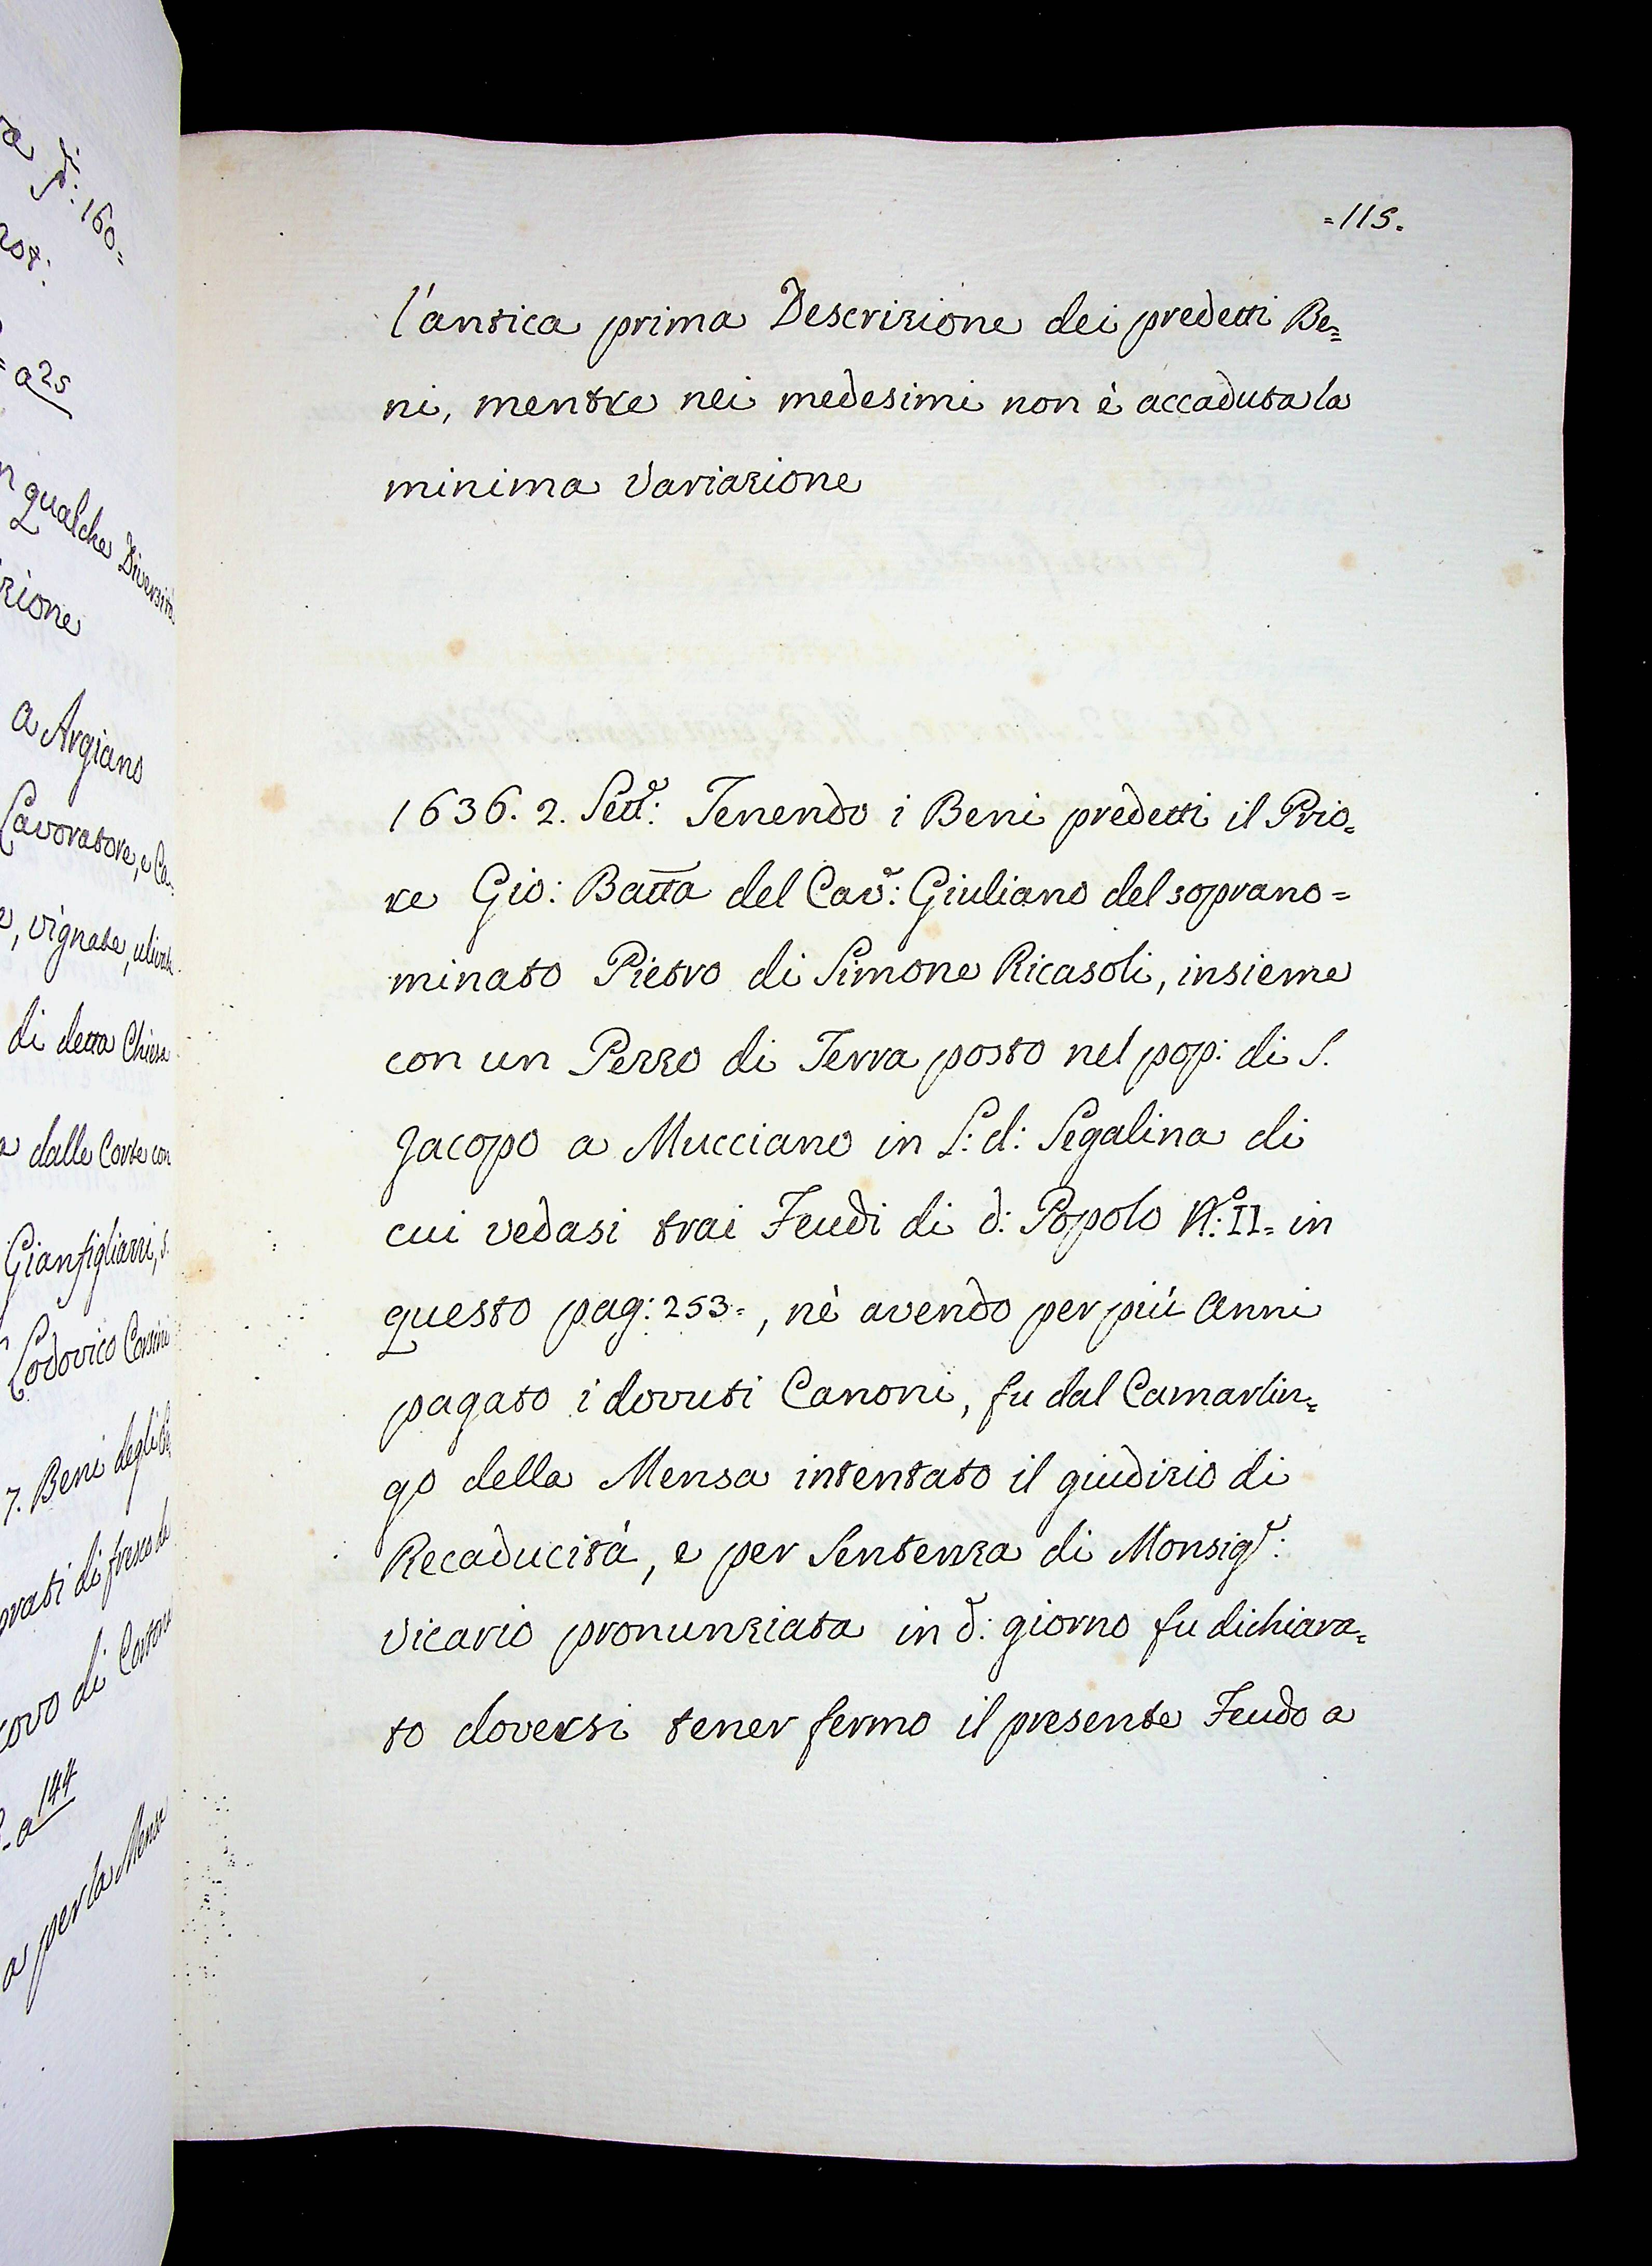 =115.
l'antica prima Descrizione dei predetti Be=
ni, mentre nei medesimi non è accaduta la
minima Variazione
1636. 2. Sett.e: Tenendo i Beni predetti il Prio=
re Gio: Batta del Cav.e: Giuliano del soprano=
minato Pietro di Simone Ricasoli, insieme
con un Pezzo di Terra posto nel pop: di S.
Jacopo a Mucciano in L: d: Segalina di
cui vedasi trai Feudi di d: Popolo N.o: II= in
questo pag: 253=, nè avendo per più Anni
pagato i dovuti Canoni, fu dal Camarlin=
go della Mensa intentato il giudizio di
Recaducità, e per Sentenza di Monsig.r:
Vicario pronunziata in d.o: giorno fu dichiara=
to doversi tener fermo il presente Feudo a
160=
208:
= a 25
qualche Diversità
zione
a Argiano
Lavoratore, e Ca=
vignate, ulivate
di detta Chiesa
dalle Corte con
Gianfigliazzi, S.
Lodovico Corsini
7. Beni degli
di fresco da
di
a 144
a per la Mensa